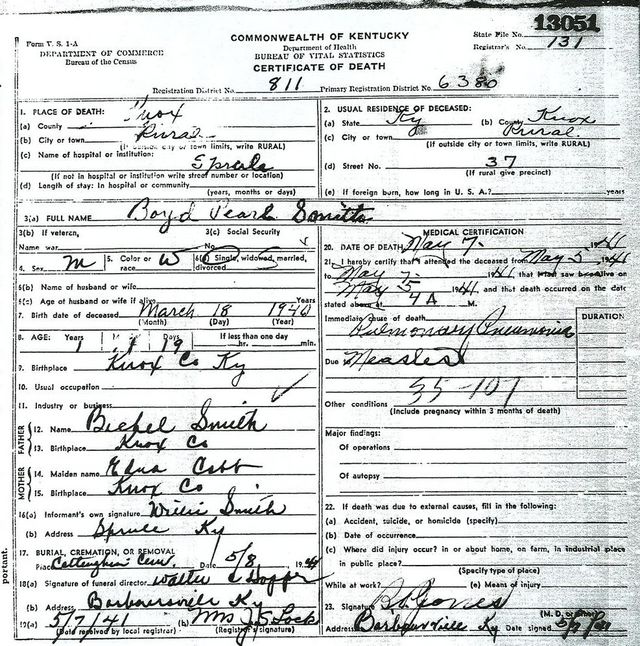 13051
COMMONWEALTH OF KENTUCKY
Form V. S. 1-A
Department of Health
State File No.
DEPARTMENT OF COMMERCE
BUREAU OF VITAL STATISTICS
Registrar's No. 131
Bureau of the Census
CERTIFICATE OF DEATH
Registration District No. 811 Primary Registration District No. 6380
1. PLACE OF DEATH:
(a) County Knox
(b) City or town Rural
(If outside city or town limits, write RURAL)
(c) Name of hospital or institution:
(If not in hospital or institution write street number or location)
(d) Length of stay: In hospital or community
(years, months or days)
2. USUAL RESIDENCE OF DECEASED:
(a) State Ky (b) County Knox
(c) City or town Rural
(If outside city or town limits, write RURAL)
(d) Street No. 37
(If rural give precinct)
(e) If foreign born, how long in U. S. A.? years
3(a) FULL NAME Boyd Pearl
3(b) If veteran, 3(c) Social Security
Name war No.
4. Sex M 5. Color or race W 6(a) Single, widowed, married, divorced
6(b) Name of husband or wife
6(c) Age of husband or wife if alive Years
7. Birth date of deceased March 18 1940
(Month) (Day) (Year)
8. AGE: Years Months Days If less than one day
1 1 19 hr. min.
9. Birthplace Knox Co Ky
10. Usual occupation
11. Industry or business
FATHER
12. Name Smith
13. Birthplace Knox Co
MOTHER
14. Maiden name Edna Cobb
15. Birthplace Knox Co
16(a) Informant's own signature Willie Smith
(b) Address Spruce Ky
17. BURIAL, CREMATION, OR REMOVAL
Place Cem. Date 5/8 1941
18(a) Signature of funeral director Walter Hopper
(b) Address Barbourville Ky
19(a) 5/7/41 (b) Mrs J. S. Lock
(Date received by local registrar) (Registrar's signature)
MEDICAL CERTIFICATION
20. DATE OF DEATH May 7- 1941
21. I hereby certify that I attended the deceased from May 5 1941
to May 7 1941 that I last saw h alive on
May 5 1941 and that death occurred on the date
stated above at 4 A M.
DURATION
Immediate cause of death
Pulmonary Pneumonia
Due to Measles
35-107
Other conditions
(Include pregnancy within 3 months of death)
Major findings:
Of operations
Of autopsy
22. If death was due to external causes, fill in the following:
(a) Accident, suicide, or homicide (specify)
(b) Date of occurrence
(c) Where did injury occur? in or about home, on farm, in industrial place
in public place?
(Specify type of place)
While at work? (e) Means of injury
23. Signature Jones
(M. D. or other)
Address Barbourville Ky Date signed
portant.